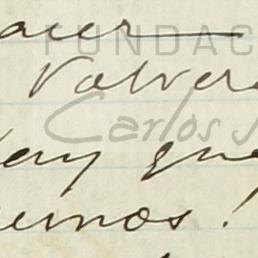 acer—
FUNDAC
Volver
Carlos
Hay que
emos!